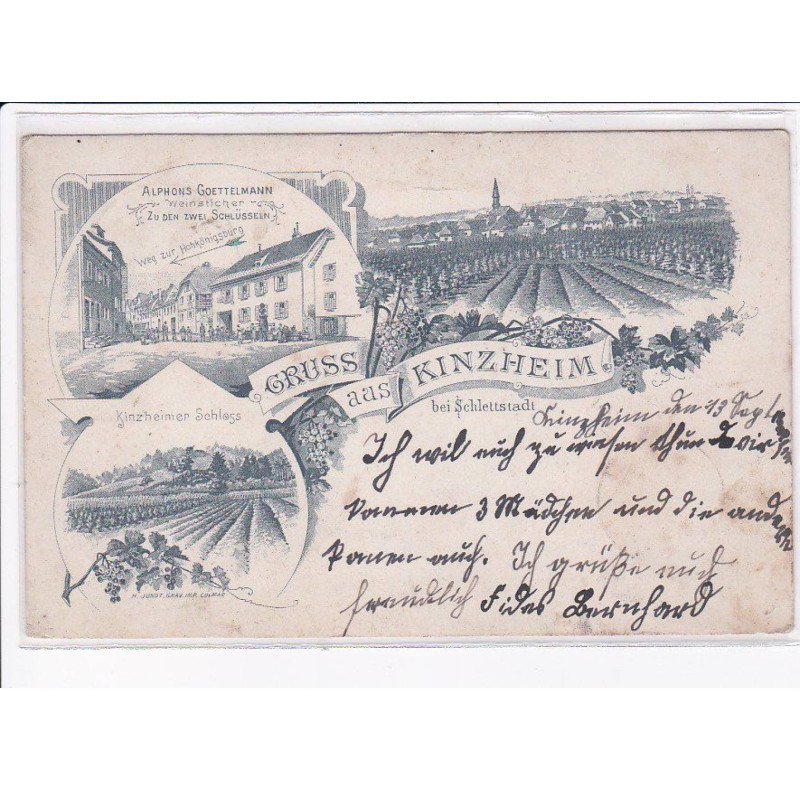 ALPHONS GOETTELMANN
Weinsticher
ZU DEN ZWEI SCHLÜSSELN
Weg zur Hohkönigsburg
GRUSS aus KINZHEIM
bei Schlettstadt
Kinzheimer Schloss
H. JUNDT, GRAV. IMP. COLMAR
Kinzheim den 13 Sept
Ich wil euch zu wiesen thun
3 Mädchen und die andere
auch. Ich grüße euch
freundlich Fides Bernhard